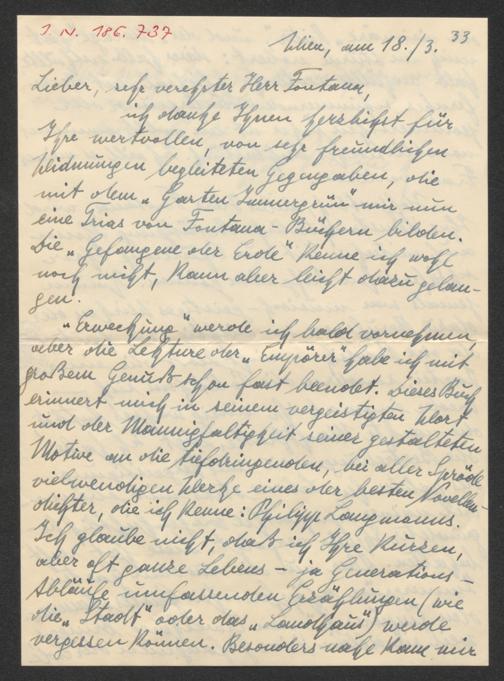 I. N. 186.737
Wien, am 18./3. 33
Lieber, sehr verehrter Herr Fontana,
ich danke Ihnen herzlichst für
Ihre wertvollen, von sehr freundlichen
Widmungen begleiteten Gegengaben, die
mit dem „Garten Immergrün" mir nun
eine Trias von Fontana-Büchern bilden.
Die „Gefangene der Erde" kenne ich wohl
noch nicht, kann aber leicht dazu gelan-
gen.
„Erweckung" werde ich bald vornehmen,
aber die Lektüre der „Empörer" habe ich mit
großem Genuß schon fast beendet. Dieses Buch
erinnert mich in seinem vergeistigten Wort
und der Mannigfaltigkeit seiner gestalteten
Motive an die tiefdringenden, bei aller Spröde
vielwendigen Werke eines der besten Novellen-
dichter, die ich kenne: Philipp Langmanns.
Ich glaube nicht, daß ich Ihre kurzen,
aber oft ganze Lebens- ja Generations-
Abläufe umfassenden Erzählungen (wie
die „Stadt" oder das „Landhaus") werde
vergessen können. Besonders nahe kam mir